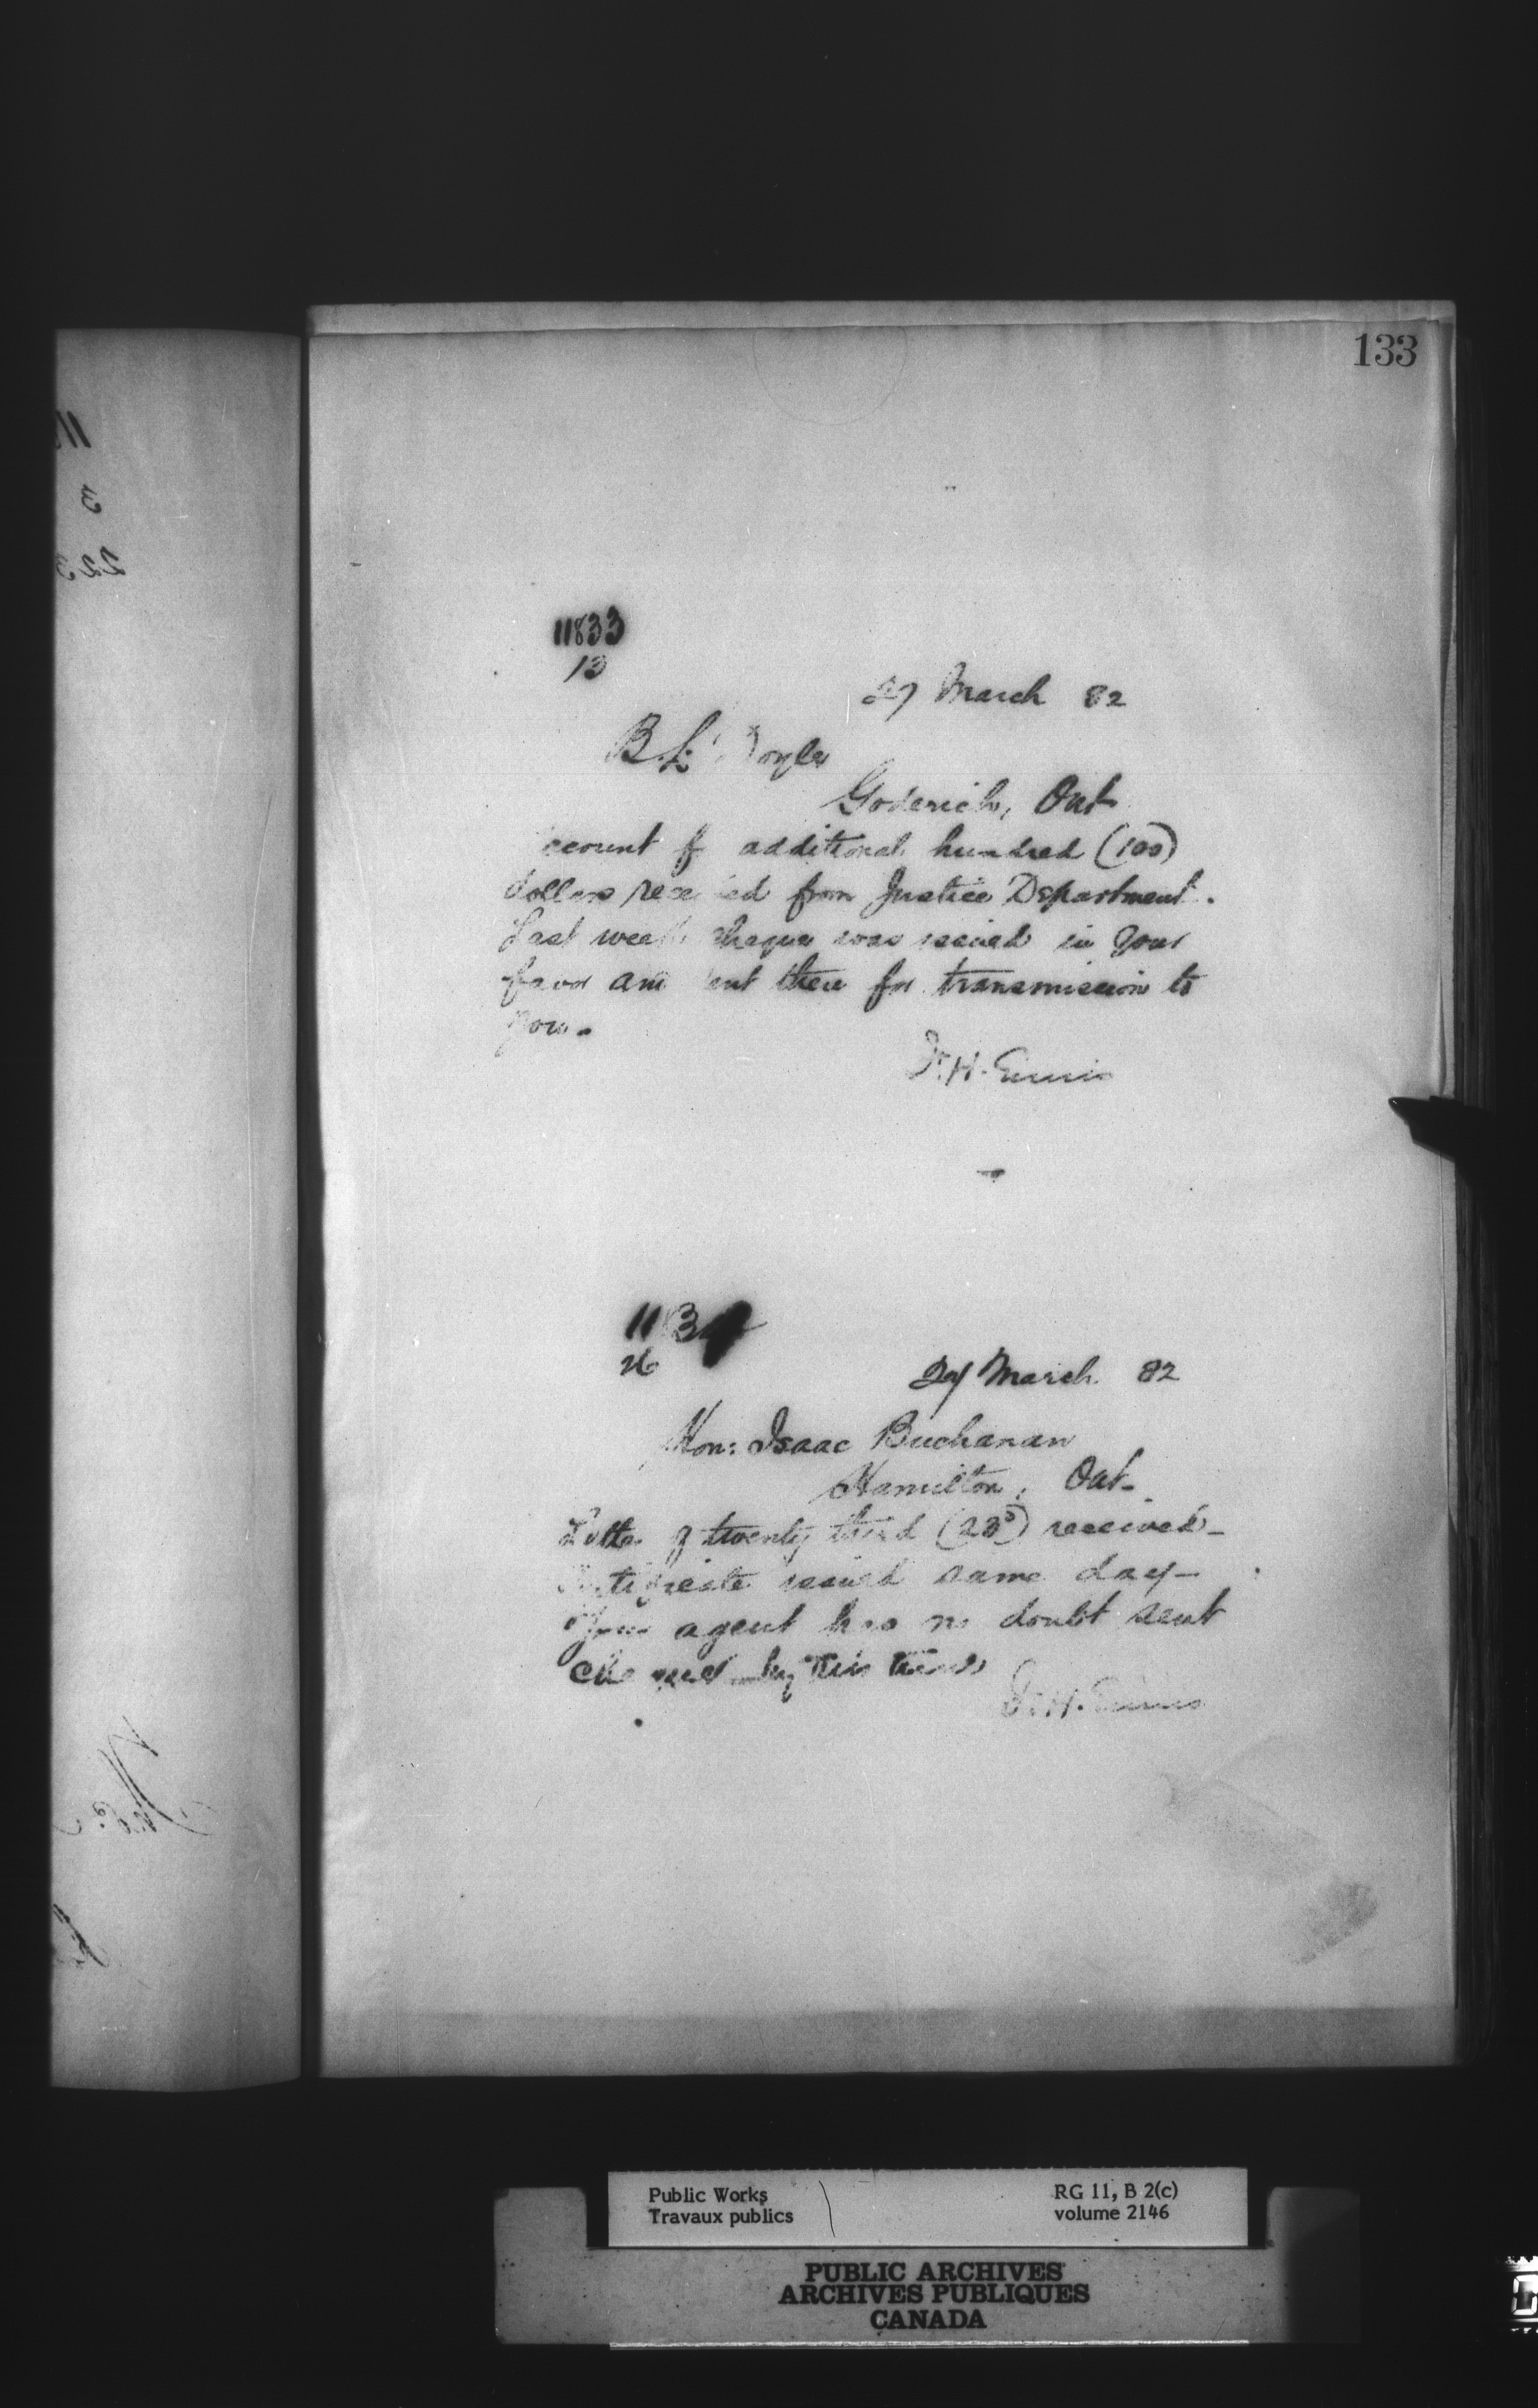 133
11833
13
27 March 82
B. L. Doyle
Goderich, Ont
ccount for additional hundred (100)
dollars received from Justice Department.
Last week cheque was issued in your
favor and sent there for transmission to
you.
F. H. Ennis
26
27 March 82
Hon: Isaac Buchanan
Hamilton, Ont.
Letter of twenty third (23d) received -
Certificate issued same day -
Your agent has no doubt sent
by this time
F. H. Ennis
Public Works
Travaux publics
RG 11, B 2(c)
volume 2146
PUBLIC ARCHIVES
ARCHIVES PUBLIQUES
CANADA